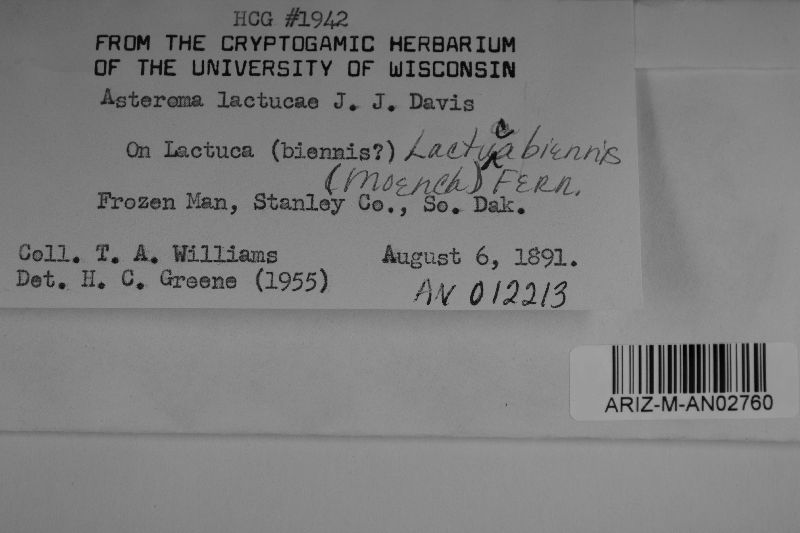 HCG #1942
FROM THE CRYPTOGAMIC HERBARIUM
OF THE UNIVERSITY OF WISCONSIN
Asteroma lactucae J. J. Davis
On Lactuca (biennis?) Lactuca biennis
(Moench) Fern.
Frozen Man, Stanley Co., So. Dak.
Coll. T. A. Williams August 6, 1891.
Det. H. C. Greene (1955) AN 012213
ARIZ-M-AN02760